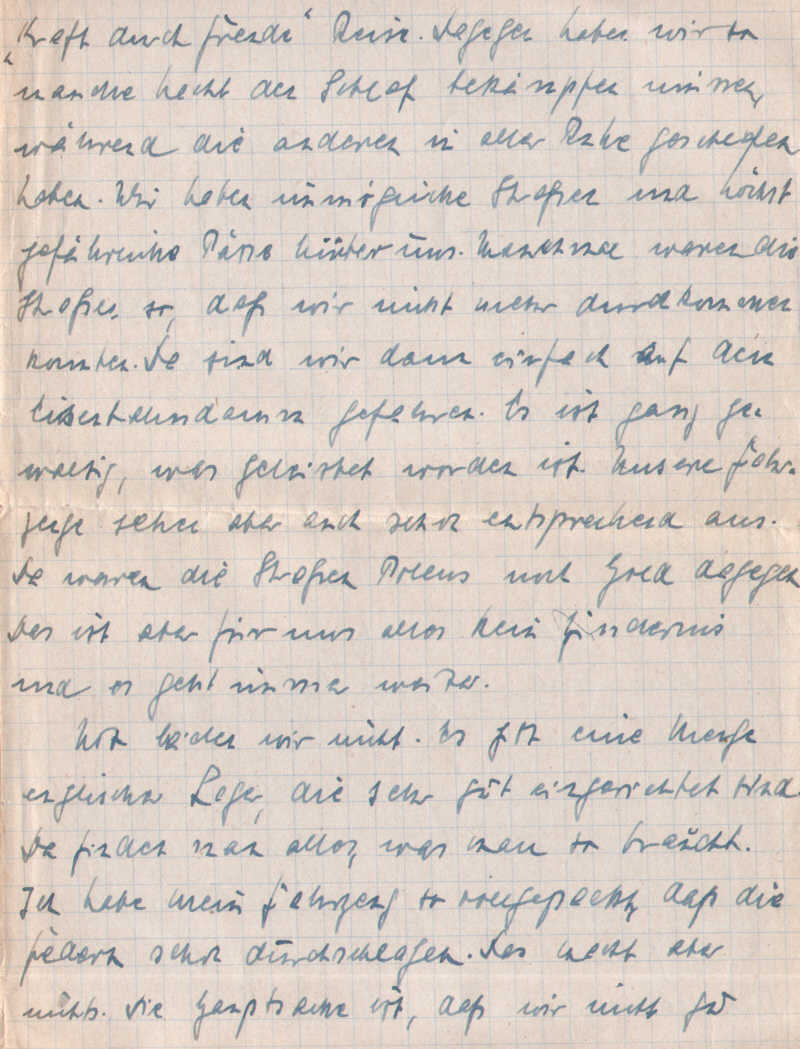 „Kraft durch Freude“ Reise. Dagegen haben wir so
manche Nacht den Schlaf bekämpfen müssen,
während die anderen in aller Ruhe geschlafen
haben. Wir haben unmögliche Straßen und höchst
gefährliche Pässe hinter uns. Manchmal waren die
Straßen so, daß wir nicht mehr durchkommen
konnten. Da sind wir dann einfach auf dem
Eisenbahndamm gefahren. Es ist ganz ge-
waltig, was geleistet worden ist. Unsere Fahr-
zeuge sehen aber auch schon entsprechend aus.
Da waren die Straßen Polens noch Gold dagegen
Das ist aber für uns alles kein Hindernis
und es geht immer weiter.
Not leiden wir nicht. Es gibt eine Menge
englischer Lager, die sehr gut eingerichtet sind.
Da findet man alles, was man so braucht.
Ich habe mein Fahrzeug so vollgepackt, daß die
Federn schon durchschlagen. Das macht aber
nichts. Die Hauptsache ist, daß wir nicht zu